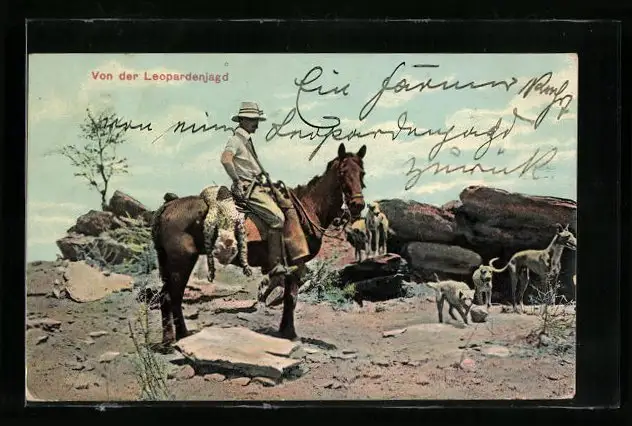 Von der Leopardenjagd
Ein Farmer kehrt
von einer Leopardenjagd
zurück